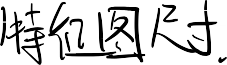 特征图尺寸.